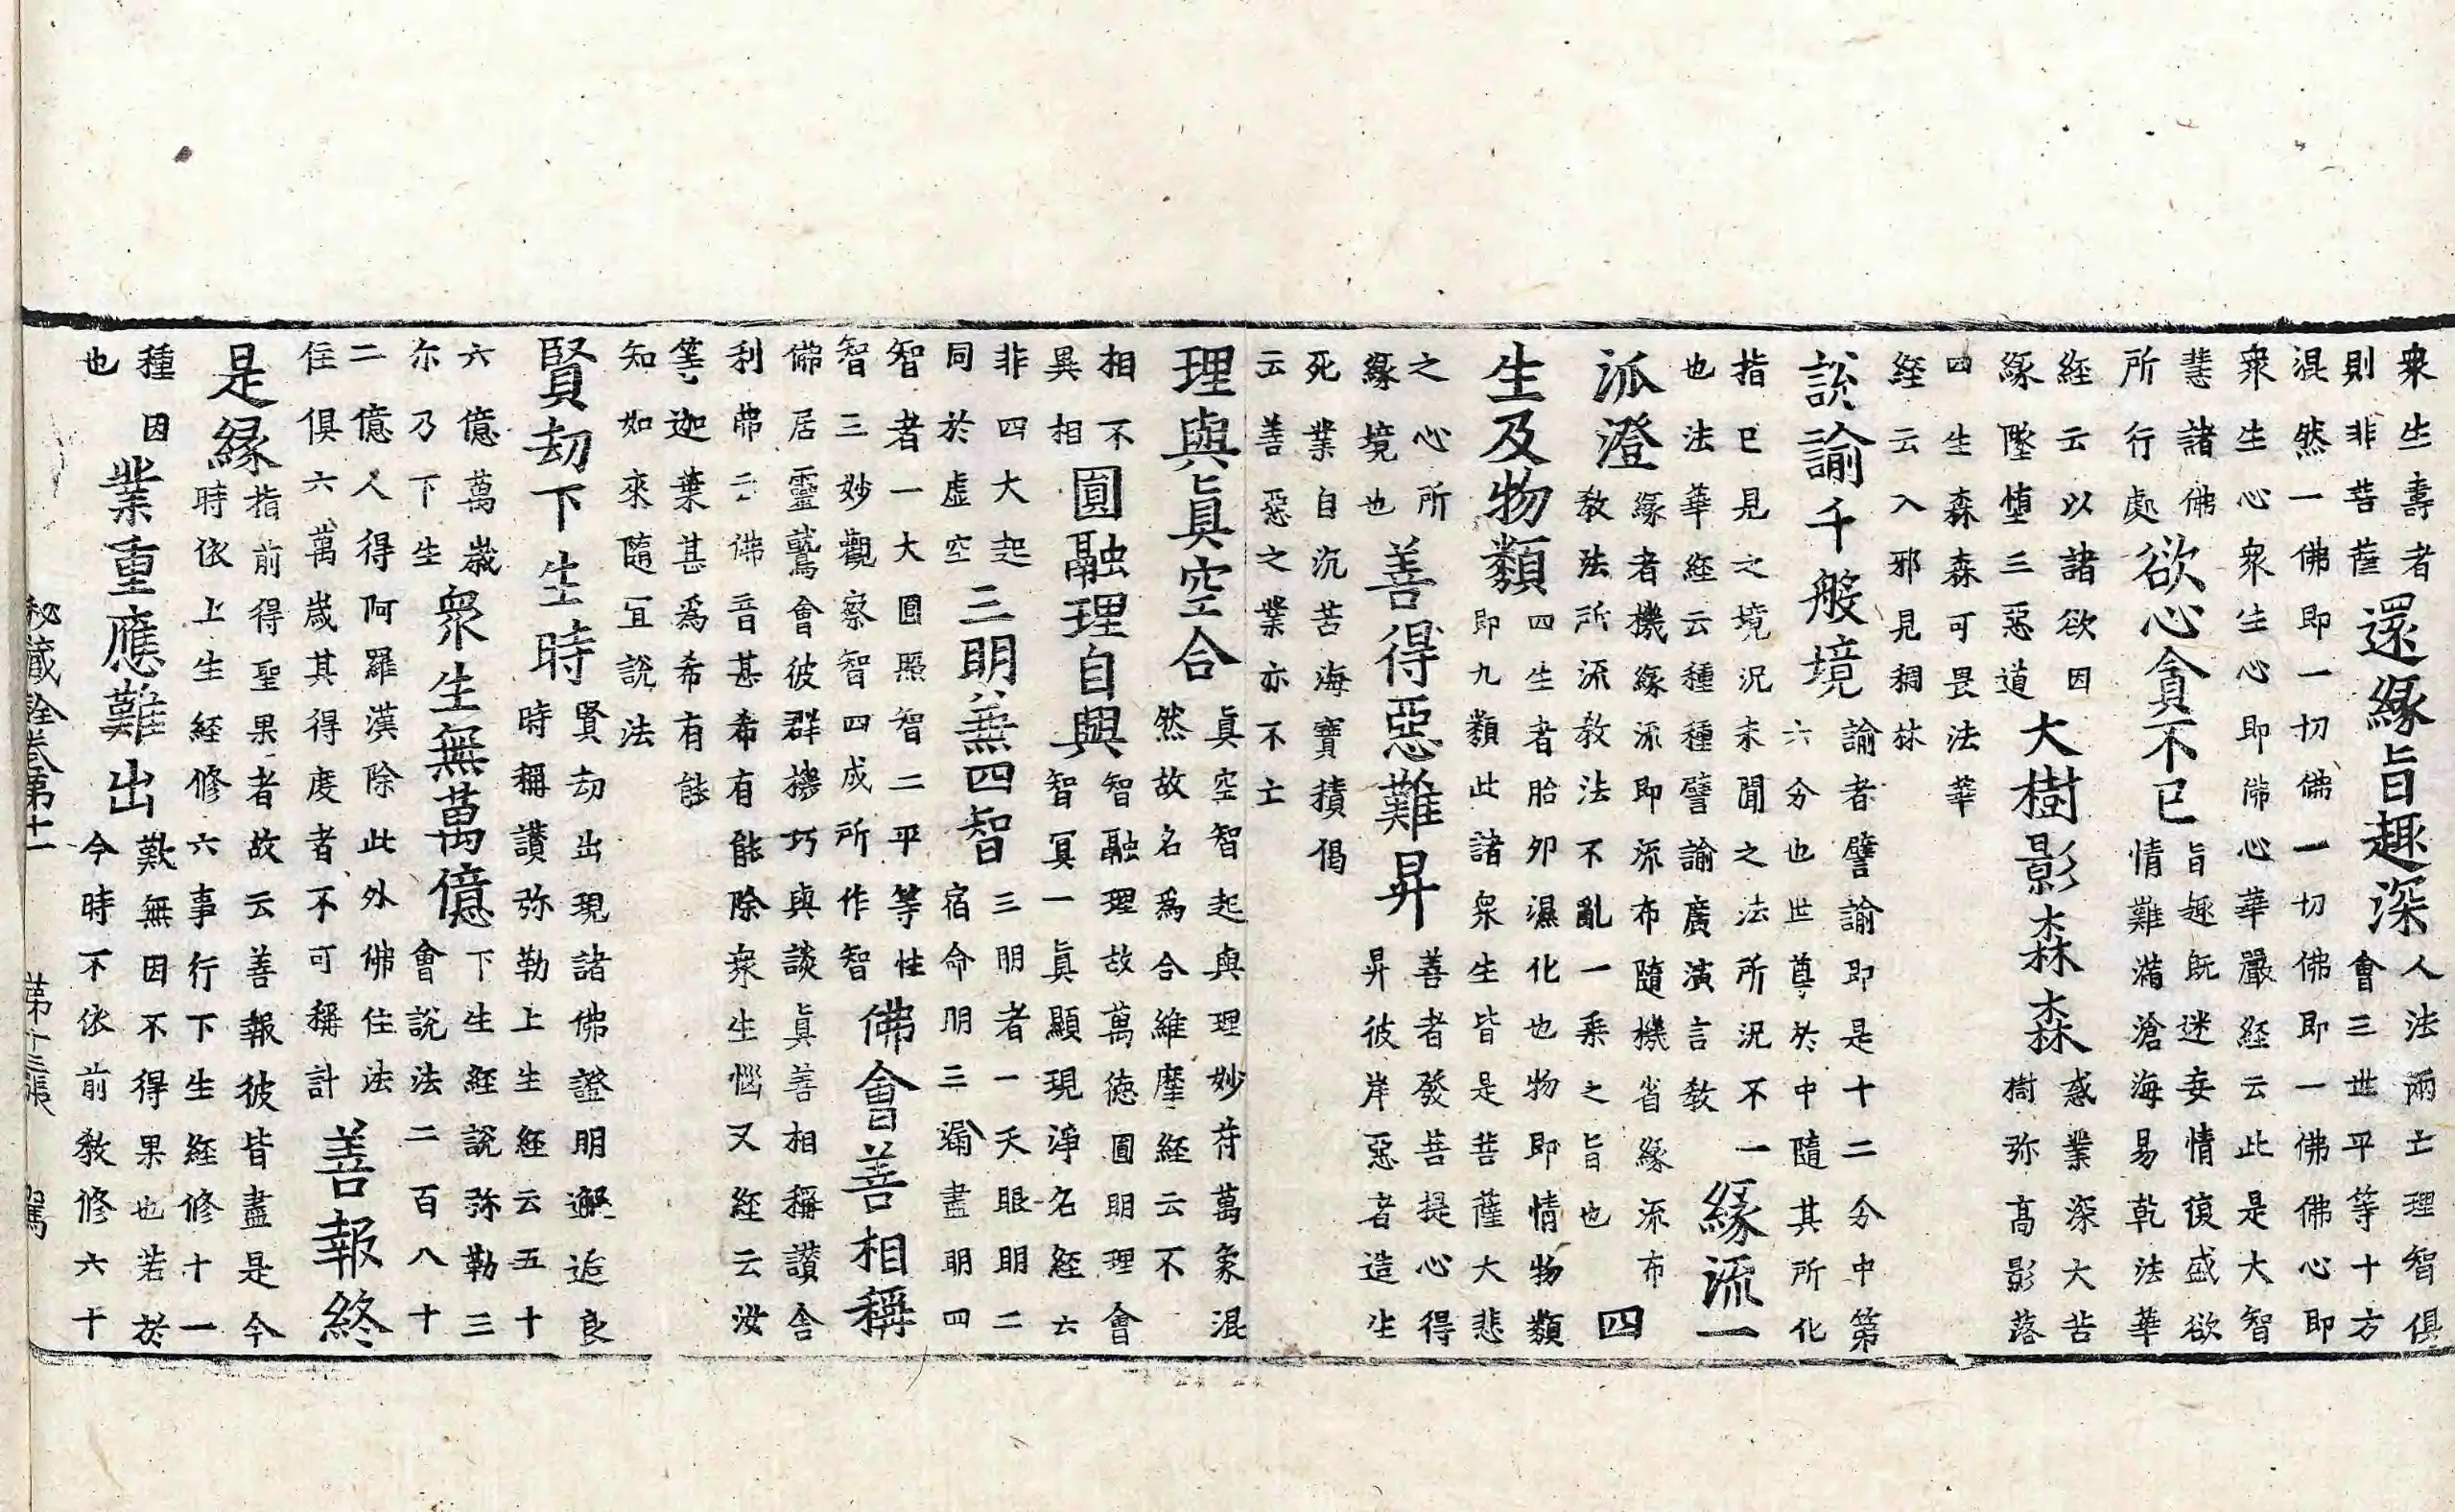 衆生壽者
則非菩薩
還緣旨趣深
人法兩亡理智俱
會三世平等十方
混然一佛即一切佛一切佛即一佛佛心即
衆生心衆生心即佛心華嚴経云此是大智
慧諸佛
所行處
欲心貪不已
旨趣旣迷妄情復盛欲
情難滿滄海易乾法華
経云以諸欲因
緣墜墮三惡道
大樹影森森
惑業深大苦
樹弥高影落
四生森森可畏法華
経云入邪見稠林
說諭千般境
諭者譬諭即是十二分中第
六分也世尊於中隨其所化
指已見之境況未聞之法所況不一
也法華経云種種譬諭廣演言教
緣流一
派澄
緣者機緣流即流布隨機省緣流布
教法所流教法不亂一乘之旨也
四
生及物類
四生者胎卵濕化也物即情物類
即九類此諸衆生皆是菩薩大悲
之心所
緣境也
善得惡難昇
善者發菩提心得
昇彼岸惡者造生
死業自沉苦海寶積偈
云善惡之業亦不亡
理與眞空合
眞空智起與理妙符萬象混
然故名爲合維摩経云不
相不
異相
圓融理自與
智融理故萬德圓明理會
智冥一眞顯現淨名経云
非四大起
同於虛空
三明兼四智
三明者一天眼明二
宿命明三漏盡明四
智者一大圓照智二平等性
智三妙觀察智四成所作智
佛會善相稱
佛居靈鷲會彼群機巧與談眞善相稱讚舍
利弗二佛音甚希有能除衆生惱又経云汝
等迦葉甚爲希有能
知如來隨宜說法
賢劫下生時
賢劫出現諸佛證明邂逅良
時稱讚弥勒上生経云五十
六億萬歲
尓乃下生
衆生無萬億
下生経說弥勒三
會說法二百八十
二億人得阿羅漢除此外佛住法
住俱六萬歲其得度者不可稱計
善報終
是緣
指前得聖果者故云善報彼皆盡是今
時依上生経修六事行下生経修十一
種因
也
業重應難出
歎無因不得果也若於
今時不依前教修六十
秘藏詮卷第十一 第十三張 駕